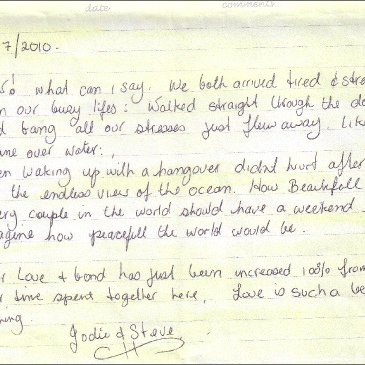 date comments
7/2010.
! What can I say. We both arrived tired & stre
our busy lifes: Walked straight through the do
bang all our stresses just flew away. Like
over water:,
waking up with a hangover didnt hurt after
the endless view of the ocean. How Beautifull
couple in the world should have a weekend
how peacefull the world would be.
Love & bond has just been increased 100% from
time spent together here, Love is such a be
Jodie & Steve